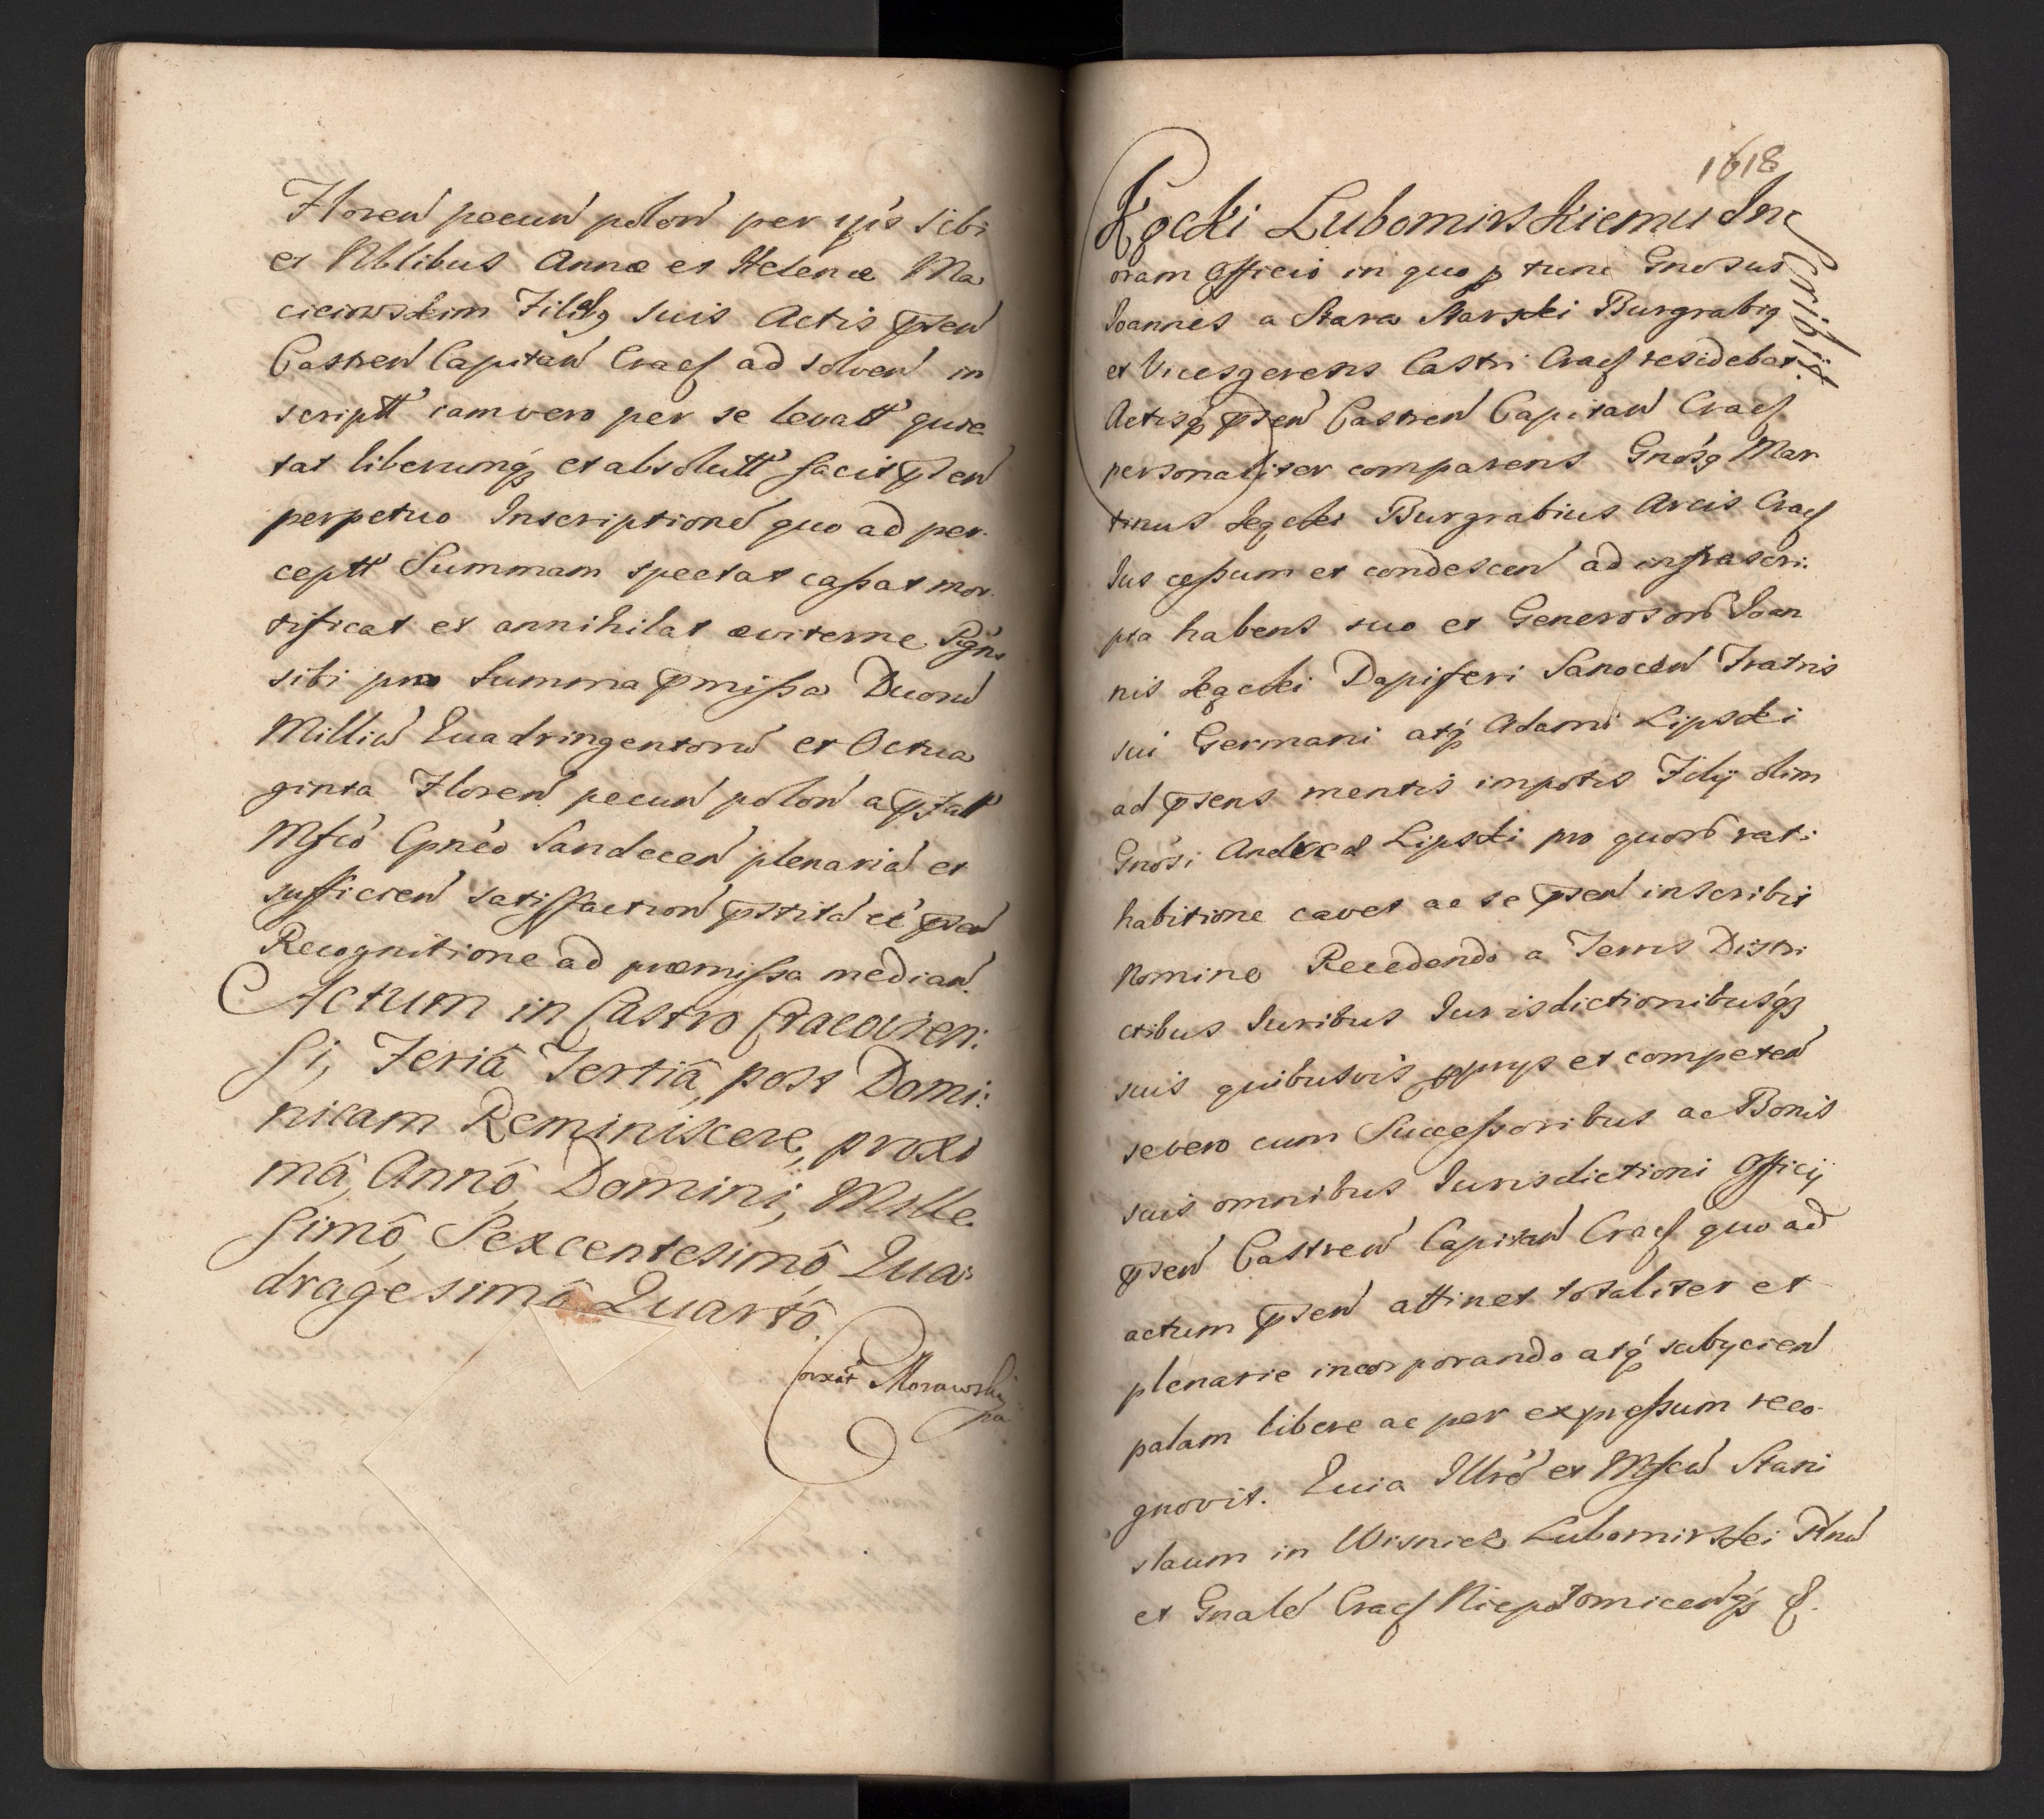 Floren pecun polon per ips sibi
et Nblibus Annæ et Helenæ Ma
cieiowskim Filiabq suis Actis pnsen
Castren Capitan Cracf ad solven in
scriptt iam vero per se levatt quie
tat liberumq et absolutt facit pnsen
perpetuo Inscriptione quo ad per-
ceptt Summam spectat cassat mor-
tificat et annihilat æviterne
sibi pro Summa pmissa Duoru
Milliu Quadringentoru et Octua
ginta Floren pecun polon a pfatt
Mfco Sandecen plenaria et
sufficien satisfaction pstita pnsen
Recognitione ad præmissa median.
Actum in Castro Cracovien:
si, Feriâ Tertiâ, post Domi:
nicam Reminiscere, proxi
mâ, Annô, Domini, Mille.
simô, Sexcentesimô, Qua:
dragesimô Quartô.
Morawski
1618
Kącki Lubomirskiemu Inscribit
oram Officio in quo p tunc Gnosus
Joannes a Stara Starski Burgrabiq
et Vicesgerens Castri Cracf residebat.
Actisq pnsen Castren Capitan Cracf
personaliter comparens Gnosq Mar
tinus Burgrabius Arcis Cracf
Jus cessum et condescen ad infrascri:
pta habens suo et Generosoru Joan
nis Dapiferi Sanocen Fratris
sui Germani atq Adami Lipski
ad pnsens mentis impotis Filij olim
Gnosi Andreæ Lipski pro quoru rati
habitione cavet ac se pnsen inscribit
Nomine Recedendo a Terris Distri
ctibus Juribus Jurisdictionibusq
suis quibusvis pprijs et competen
se vero cum Successoribus ac Bonis
suis omnibus Jurisdictioni Officij
pnsen Castren Capitan Cracf quo ad
actum pnsen attinet totaliter et
plenarie incorporando atq subijcien
palam libere ac per expressum reco-
gnovit. Quia Illre et Mfcu Stani
slaum in Wisnicz Lubomirski Plnu
et Gnale Cracf Niepolomicenq &.